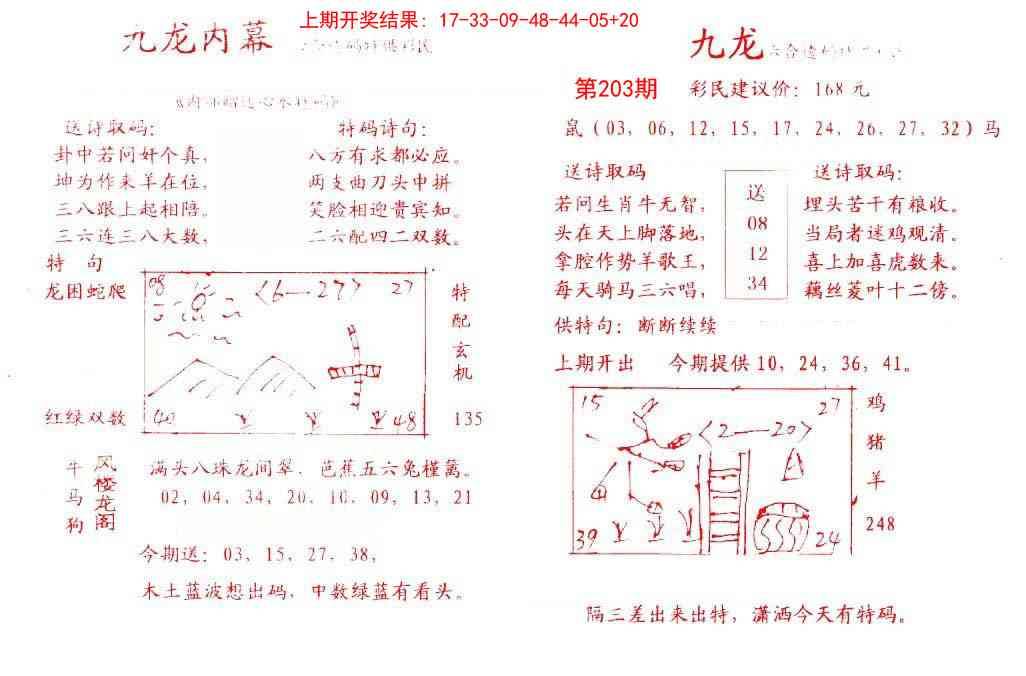 上期开奖结果: 17-33-09-48-44-05+20
九龙内幕
送诗取码:
卦中若问奸个真,
坤为作来羊在位,
三八跟上起相陪。
三六连三八大数,
特码诗句:
八方有求都必应。
两支曲刀头中拼
笑脸相迎贵宾知。
二六配四二双数。
特 句
龙困蛇爬
红绿双数
08
<6—27>
27
40
48
特配玄机
135
牛马狗
风楼龙阁
满头八珠龙间翠. 芭蕉五六兔槿篱。
02, 04, 34, 20, 10, 09, 13, 21
今期送: 03, 15, 27, 38,
木土蓝波想出码, 中数绿蓝有看头。
九龙
第203期
彩民建议价: 168 元
鼠 (03, 06, 12, 15, 17, 24, 26, 27, 32) 马
送诗取码
若问生肖牛无智,
头在天上脚落地,
拿腔作势羊歌王,
每天骑马三六唱,
送
08
12
34
送诗取码:
埋头苦干有粮收。
当局者迷鸡观清。
喜上加喜虎数来。
藕丝菱叶十二傍。
供特句: 断断续续
上期开出 今期提供 10, 24, 36, 41。
15
<2—20>
27
39
24
鸡猪羊
248
隔三差出来出特, 潇洒今天有特码。